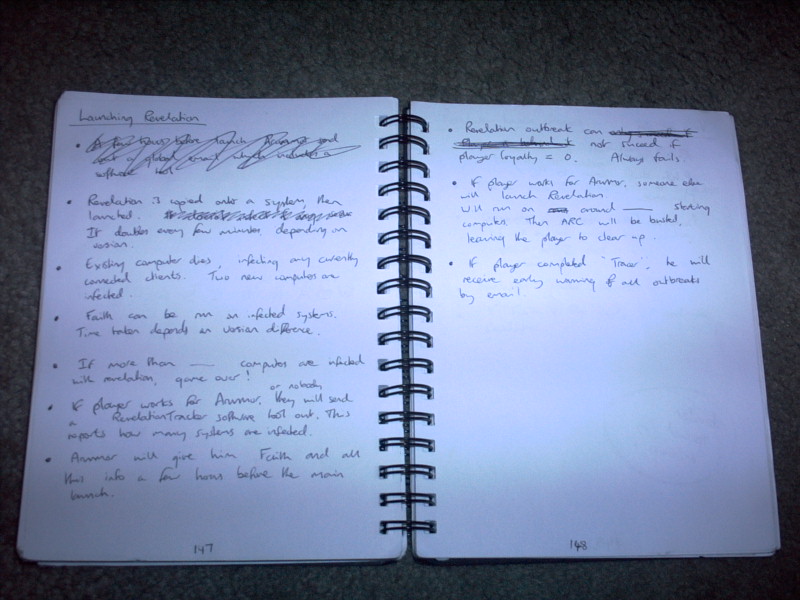 Launching Revelation
• A few hours before launch Arunmor send
out a global email which includes a
software tool.
• Revelation is copied onto a system, then
launched.
It doubles every few minutes, depending on
version.
• Existing computer dies, infecting any currently
connected clients. Two new computers are
infected.
• Faith can be run on infected systems.
Time taken depends on version difference.
• If more than ___ computers are infected
with revelation, game over!
or nobody
• If player works for Arunmor, they will send
a RevelationTracker software tool out. This
reports how many systems are infected.
• Arunmor will give him Faith and all
this info a few hours before the main
launch.
147
• Revelation outbreak can
not succeed if
player loyalty = 0. Always fails
• If player works for Arunmor, someone else
will launch Revelation.
Will run on around ___ starting
computers. Then ARC will be busted,
leaving the player to clear up.
• If player completed "Tracer", he will
receive early warning of all outbreaks
by email!
148